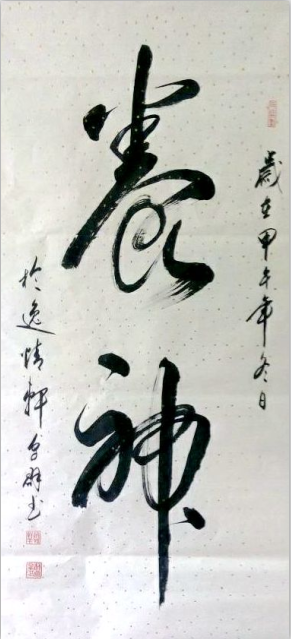 歲在甲午年冬日
養神
於逸情軒 书